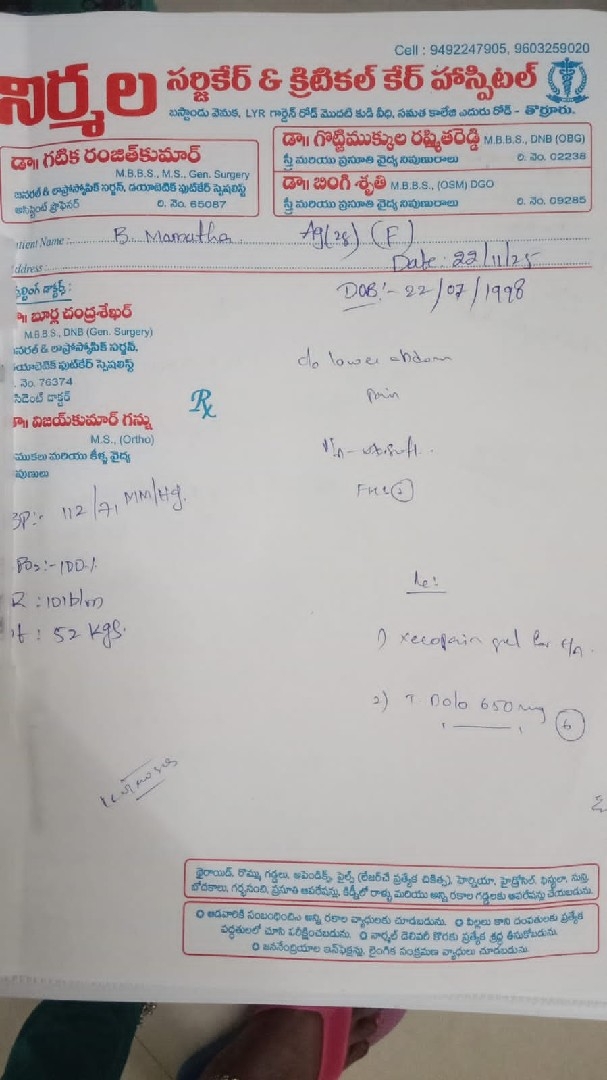 Cell : 9492247905, 9603259020
నిర్మల సర్జికేర్ & క్రిటికల్ కేర్ హాస్పిటల్
బస్టాండు వెనుక, LYR గార్డెన్ రోడ్ మొదటి కుడి వీధి, సమత కాలేజి ఎదురు రోడ్ - తొర్రూరు.
డా॥ గటిక రంజిత్‌కుమార్
M.B.B.S., M.S., Gen. Surgery
జనరల్ & లాప్రోస్కోపిక్ సర్జన్, డయాబెటిక్ ఫుట్‌కేర్ స్పెషలిస్ట్
అసిస్టెంట్ ప్రొఫెసర్ రి. నెం. 65087
డా॥ గొట్టిముక్కుల రష్మితరెడ్డి M.B.B.S., DNB (OBG)
స్త్రీ మరియు ప్రసూతి వైద్య నిపుణురాలు రి. నెం. 02238
డా॥ బింగి శృతి M.B.B.S., (OSM) DGO
స్త్రీ మరియు ప్రసూతి వైద్య నిపుణురాలు రి. నెం. 09285
atient Name : B. Mamatha Ag(28) (F)
ddress : Date: 22/11/25
DOB:- 22/07/1998
ల్టింగ్ డాక్టర్స్ :
డా॥ బూర్ల చంద్రశేఖర్
M.B.B.S., DNB (Gen. Surgery)
నరల్ & లాప్రోస్కోపిక్ సర్జన్,
యాబెటిక్ ఫుట్‌కేర్ స్పెషలిస్ట్
. నెం. 76374
సిడెంట్ డాక్టర్
డా॥ విజయ్‌కుమార్ గన్ను
M.S., (Ortho)
ముకలు మరియు కీళ్ళ వైద్య
పుణులు
Rx
c/o lower abdom
pain
BP:- 112/71 MM/Hg.
PO2:- 100%
R : 101b/m
t : 52 kgs.
1) xecopain gel for
2) T Dolo 650 mg 6
థైరాయిడ్, రొమ్ము గడ్డలు, అపెండిక్స్, పైల్స్ (లేజర్‌చే ప్రత్యేక చికిత్స), హెర్నియా, హైడ్రోసిల్, ఫిస్టులా, సున్తి,
బోదకాలు, గర్భసంచి, ప్రసూతి ఆపరేషన్లు, కిడ్నీలో రాళ్ళు మరియు అన్ని రకాల గడ్డలకు ఆపరేషన్లు చేయబడును.
ఆడవారికి సంబంధించిన అన్ని రకాల వ్యాధులకు చూడబడును. పిల్లలు కాని దంపతులకు ప్రత్యేక
పద్ధతులలో చూసి పరీక్షించబడును. నార్మల్ డెలివరీ కొరకు ప్రత్యేక శ్రద్ధ తీసుకోబడును.
జననేంద్రియాల ఇన్‌ఫెక్షన్లు, లైంగిక సంక్రమణ వ్యాధులు చూడబడును.